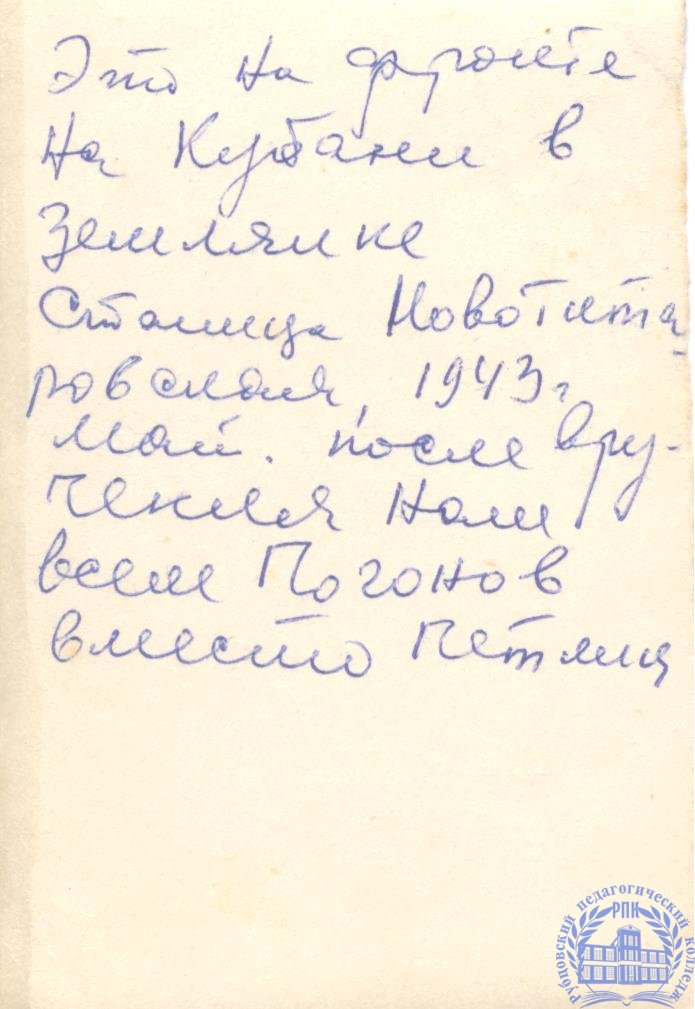 Это на фронте
на Кубани в
землянке
Станица Новотита-
ровская, 1943 г
май. после вру-
чения нам
всем Погонов
вместо петлиц
Рубцовский педагогический колледж
РПК